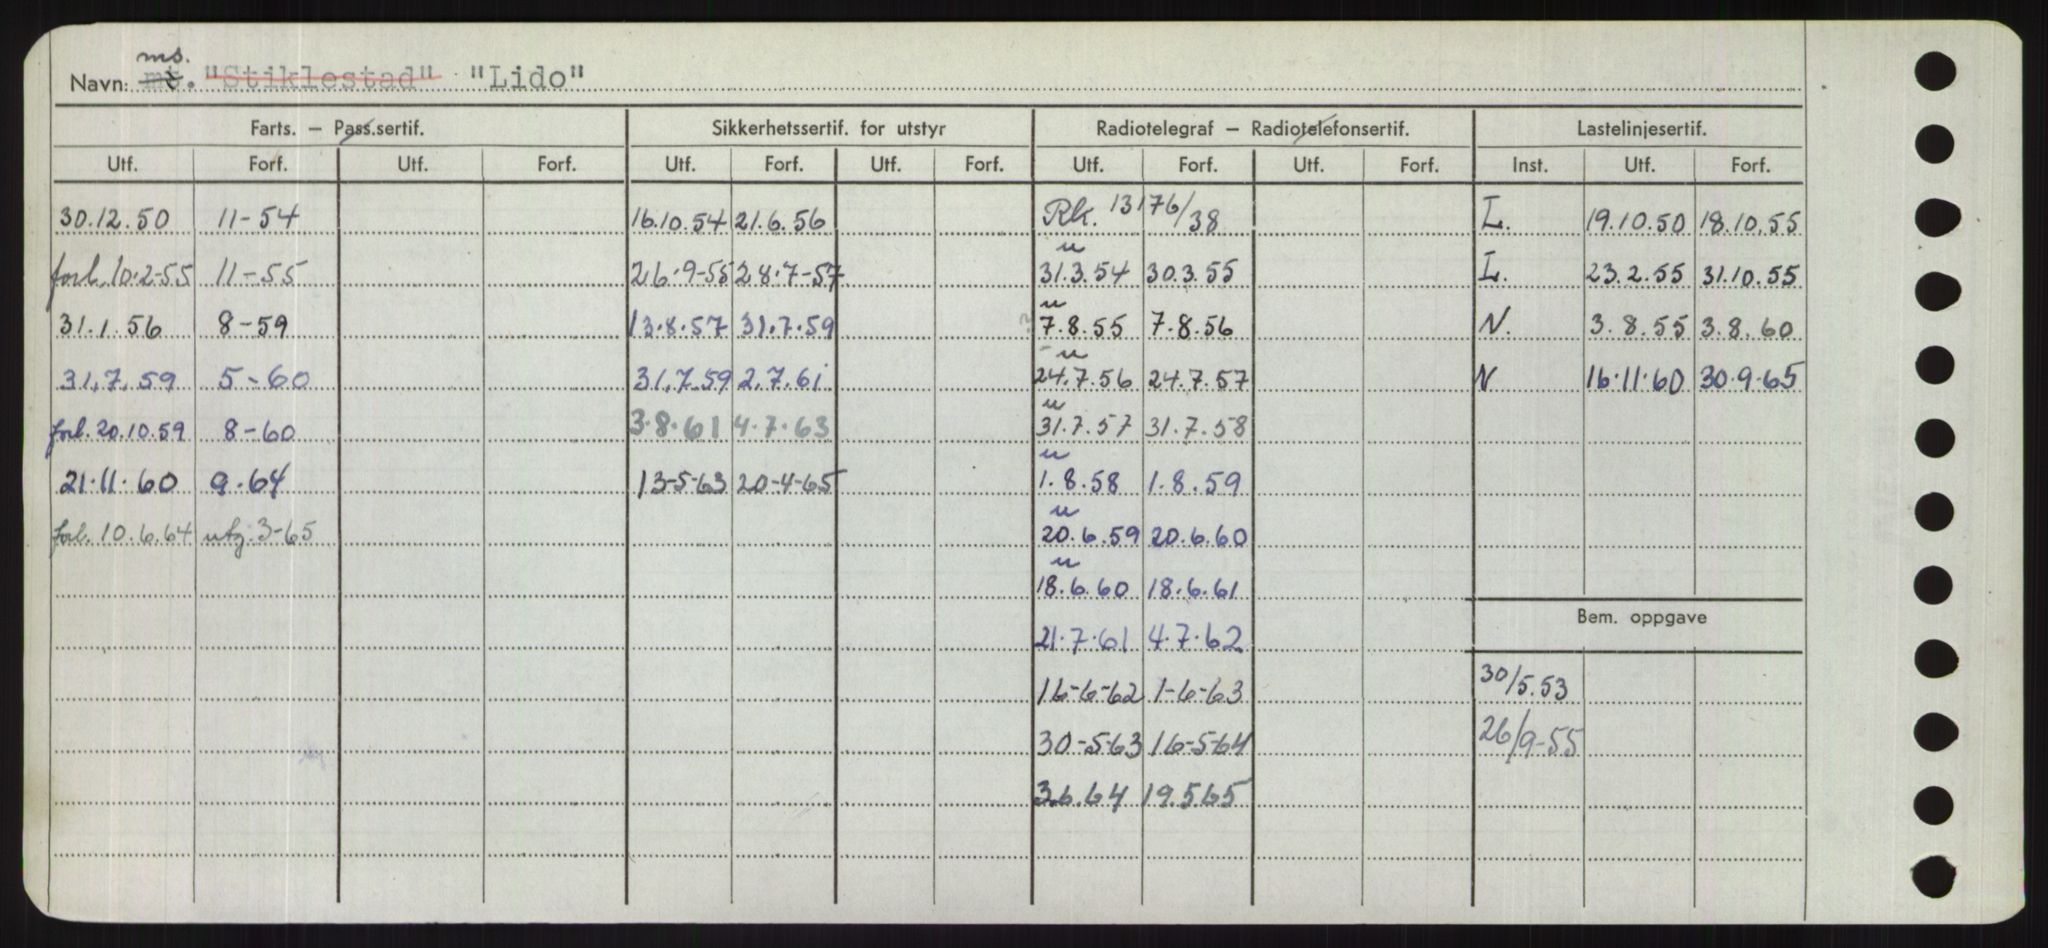 ms.
Navn: mt. "Stiklestad" "Lido"
Farts. – Pass.sertif. Sikkerhetssertif. for utstyr Radiotelegraf – Radiotelefonsertif. Lastelinjesertif.
Utf. Forf. Utf. Forf. Utf. Forf. Utf. Forf. Utf. Forf. Utf. Forf. Inst. Utf. Forf.
30.12.50 11-54 16.10.54 21.6.56 Rk. 13176/38 L. 19.10.50 18.10.55
u
forl. 10.2-55 11-55 26.9-55 28.7-57 31.3.54 30.3.55 L. 23.2.55 31.10.55
u
31.1.56 8-59 13.8.57 31.7.59 7.8.55 7.8.56 N. 3.8.55 3.8.60
u
31.7.59 5-60 31.7.59 2.7.61 24.7.56 24.7.57 N 16.11.60 30.9.65
u
forl. 20.10.59 8-60 3.8.61 4.7.63 31.7.57 31.7.58
u
21.11.60 9.64 13-5-63 20-4-65 1.8.58 1.8.59
u
forl. 10.6.64 utg. 3-65 20.6.59 20.6.60
u
18.6.60 18.6.61
Bem. oppgave
21.7.61 4.7.62
16-6-62 1-6-63 30/5.53
30-5-63 16-5-64 26/9-55
3.6.64 19.5.65